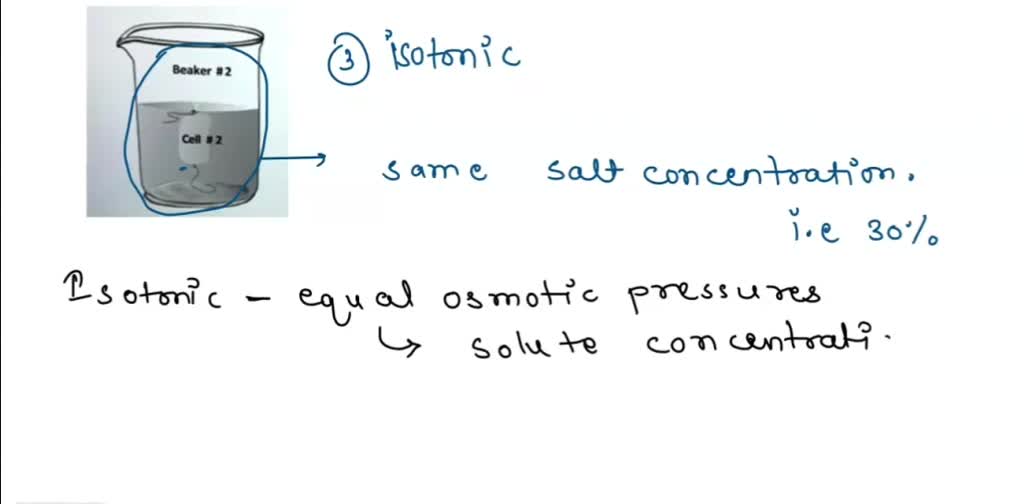 Beaker #2
Cell #2
③ isotonic
same salt concentration.
i.e 30%
Isotonic - equal osmotic pressures
↳ solute concentrati.